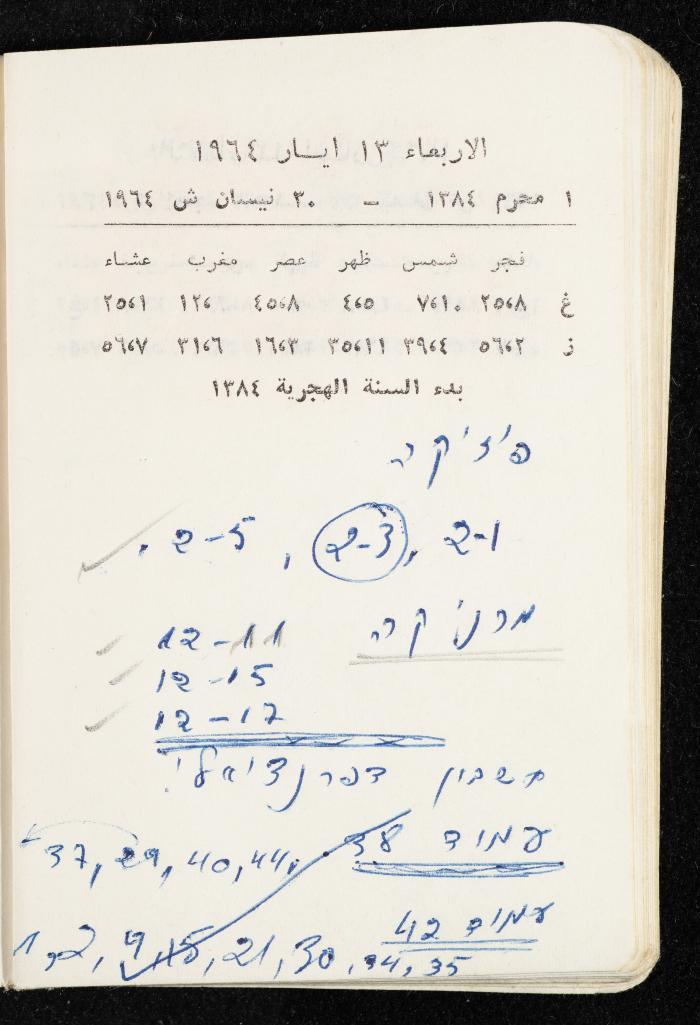 الاربعاء ١٣ ايـار ١٩٦٤
١ محرم ١٣٨٤ – ٣٠ نيسان ش ١٩٦٤
فجر شمس ظهر عصر مغرب عشاء
غ ٢٥،٨ ٧،١٠ ٤،٥ ٤٥،٨ ١٢،٠ ٢٥،١
ز ٥٦،٢ ٣٩،٤ ٣٥،١١ ١٦،٣ ٣١،٦ ٥٦،٧
بدء السنة الهجرية ١٣٨٤
פיזיקה
2-1, 2-3, 2-5.
מכניקה
12-11
12-15
12-17
חשבון דפרנציאלי.
עמוד 38
37, 29, 40, 44.
עמוד 42
1, 2, 9, 15, 21, 30, 34, 35